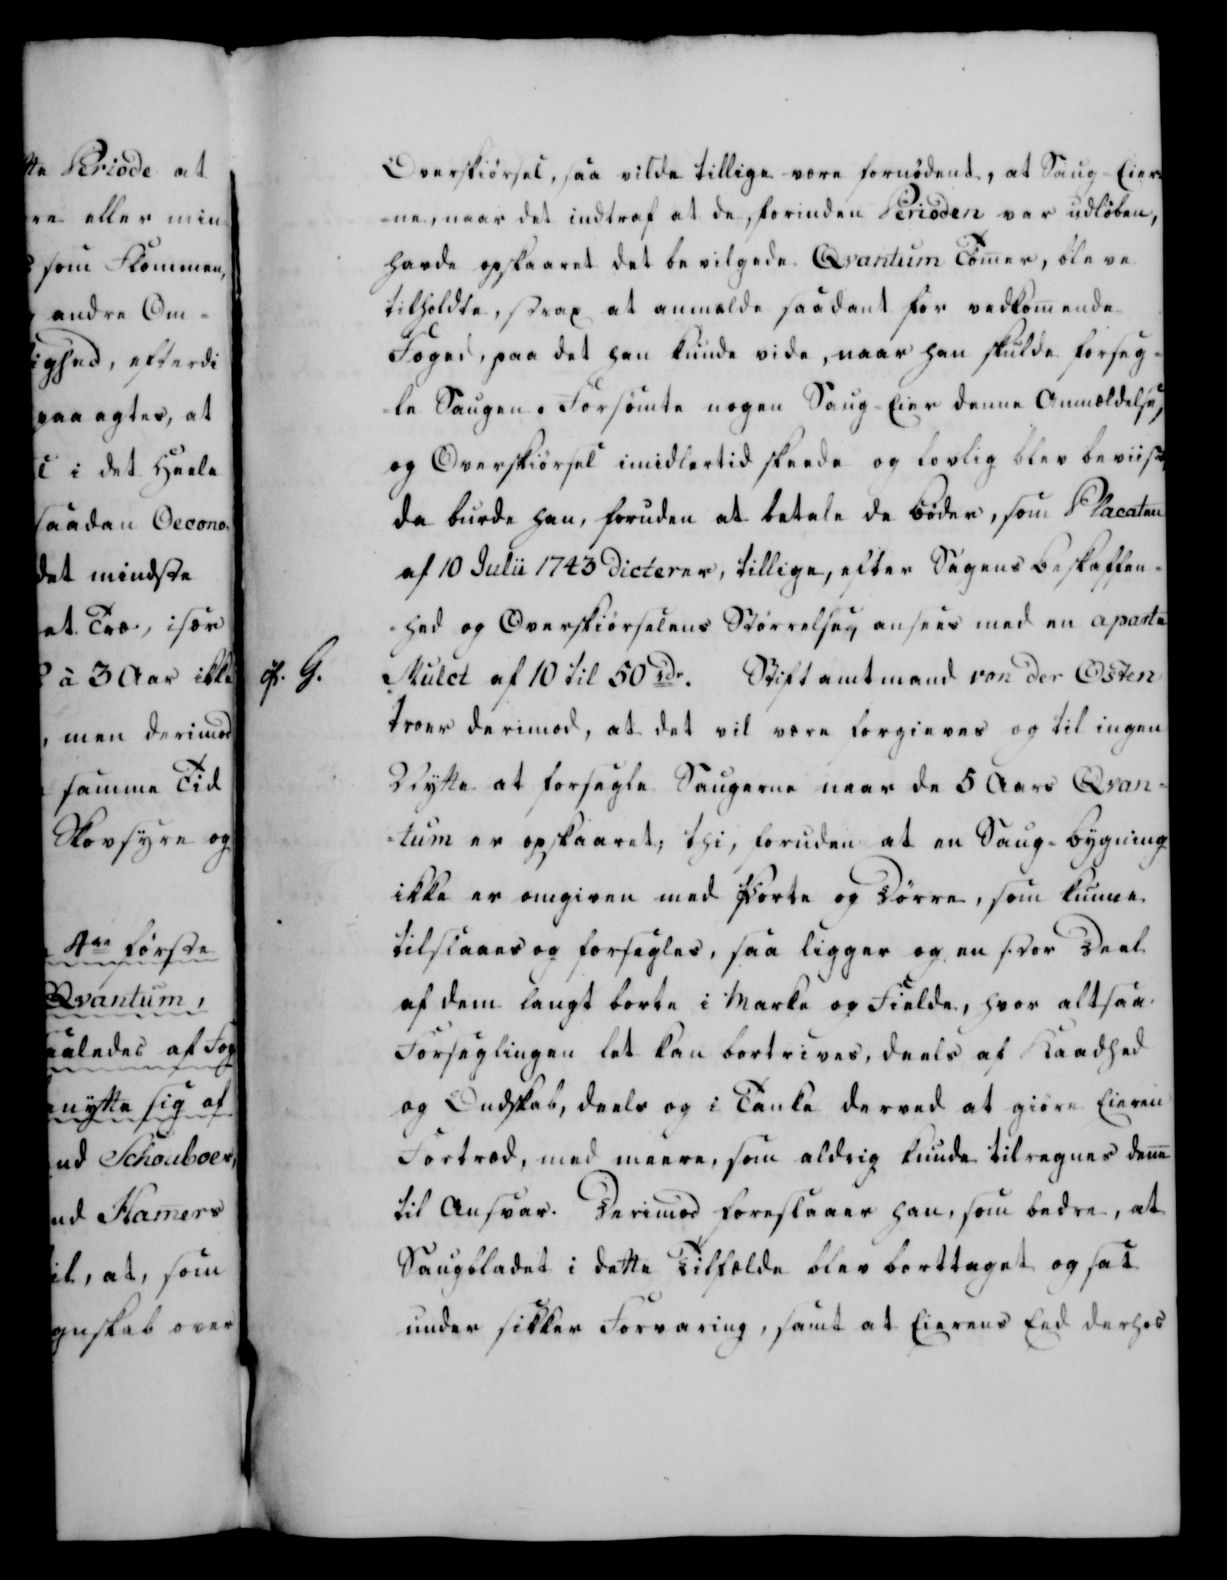 tte Periode at
re eller min
som Flommen,
andre Om-
ighed, efterdi
paa agtes, at
i det Heele
saadan Oecono-
det mindste
at Træ, især
à 3 Aar ikke
, men derimod
samme Tid
Skovhyre og
4de første
Qvantum,
aaledes af Fog
enytte sig af
nd Schouboes,
nd Hamers
il, at, som
gnskab over
Overskiørsel, saa vilde tillige være fornødent, at Saug-Eier-
-ne, naar det indtraf at de, forinden Perioden var udløben,
havde opskaaret det bevilgede Qvantum Tømer, bleve
tilholdte, strax at anmelde saadant for vedkommende
Foged, paa det han kunde vide, naar han skulde forseg-
-le Saugen. Forsømte nogen Saug-Eier denne Anmældelse,
og Overskiørsel imidlertid skeede og lovlig blev beviist,
da burde han, foruden at betale de Bøder, som Placaten
af 10 Julii 1743 dicterer, tillige, efter Sagens Beskaffen-
-hed og Overskiørselens Størrelse, ansees med en aparte
cfr. G. Mulct af 10 til 50 rdr. Stiftamtmand von der Osten
troer derimod, at det vil være forgieves og til ingen
Nytte at forsegle Saugerne naar de 5 Aars Qvan-
-tum er opskaaret; thi, foruden at en Saug-Bygning
ikke er omgiven med Porte og Dørre, som kunne
tilslaaes og forsegles, saa ligger og en stor Deel
af dem langt borte i Marke og Fielde, hvor altsaa
Forseglingen let kan bortrives, deels af Kaadhed
og Ondskab, deels og i Tanke derved at giøre Eieren
Fortræd, med meere, som aldrig kunde tilregnes denne
til Ansvar. Derimod foreslaaer han, som bedre, at
Saugbladet i dette Tilfælde blev borttaget og sat
under sikker Forvaring, samt at Eierens Eed derhos